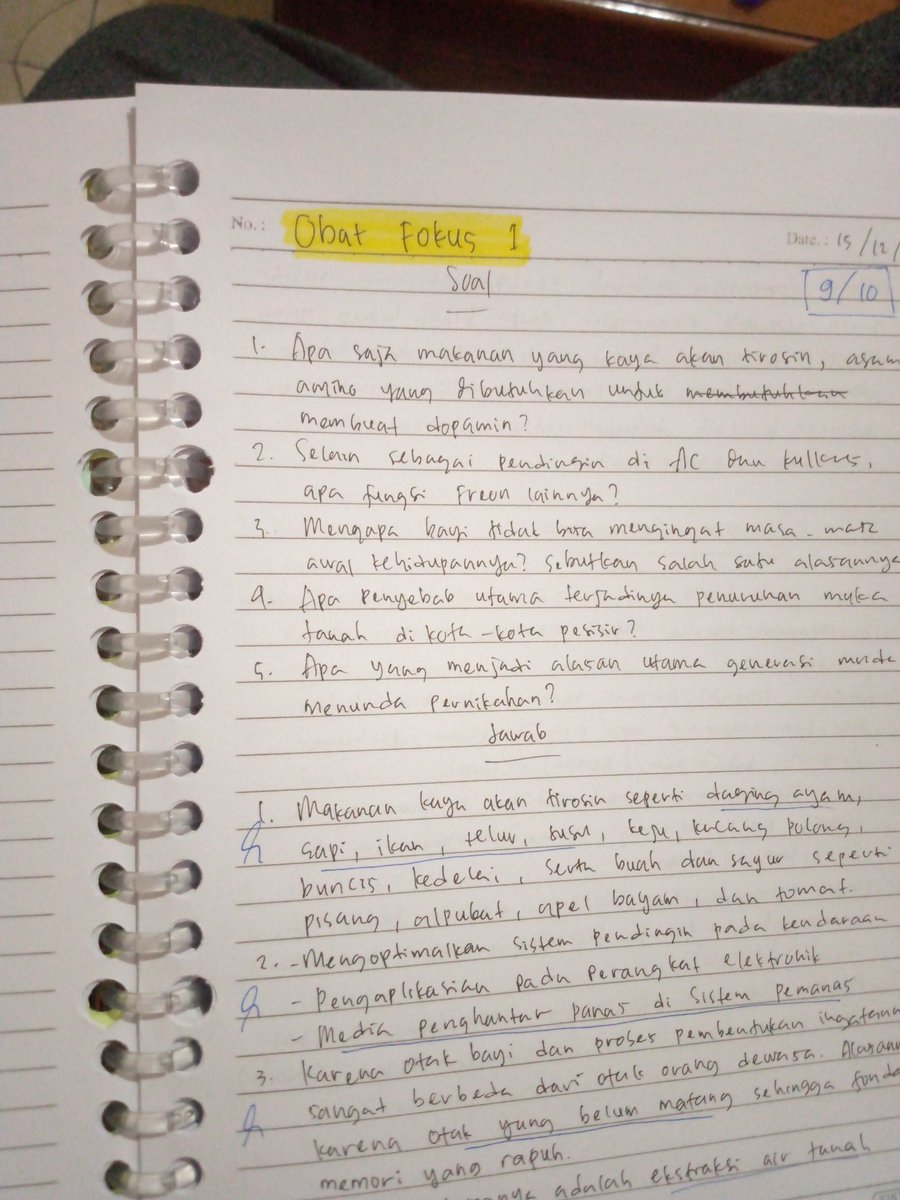 No.: Obat Fokus 1
Date.: 15/12/
Soal
9/10
1. Apa saja makanan yang kaya akan tirosin, asam
amino yang dibutuhkan untuk membutuhkan
membuat dopamin?
2. Selain sebagai pendingin di AC dan kulkas,
apa fungsi Freon lainnya?
3. Mengapa bayi tidak bisa mengingat masa-masa
awal kehidupannya? Sebutkan salah satu alasannya
4. Apa penyebab utama terjadinya penurunan muka
tanah di kota-kota pesisir?
5. Apa yang menjadi alasan utama generasi muda
menunda pernikahan?
Jawab
1. Makanan kaya akan tirosin seperti daging ayam,
sapi, ikan, telur, susu, keju, kacang polong,
buncis, kedelai, serta buah dan sayur seperti
pisang, alpukat, apel bayam, dan tomat.
2. - Mengoptimalkan sistem pendingin pada kendaraan
- Pengaplikasian pada perangkat elektronik
- Media penghantar panas di sistem pemanas
3. Karena otak bayi dan proses pembentukan ingatannya
sangat berbeda dari otak orang dewasa. Alasannya
karena otak yang belum matang sehingga fonda
memori yang rapuh.
adalah ekstraksi air tanah